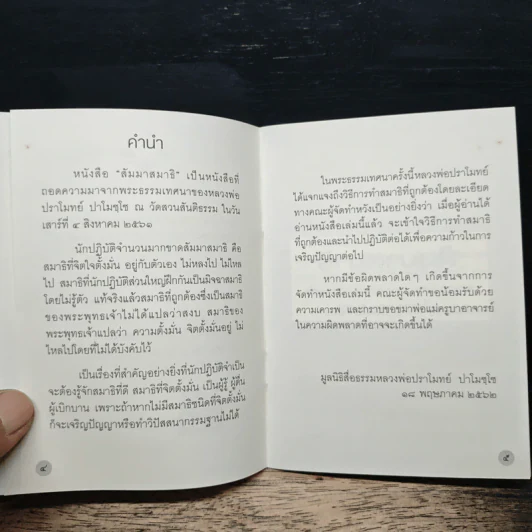 คำนำ
หนังสือ "สัมมาสมาธิ" เป็นหนังสือที่
ถอดความมาจากพระธรรมเทศนาของหลวงพ่อ
ปราโมทย์ ปาโมชฺโช ณ วัดสวนสันติธรรม ในวัน
เสาร์ที่ ๔ สิงหาคม ๒๕๖๑
นักปฏิบัติจำนวนมากขาดสัมมาสมาธิ คือ
สมาธิที่จิตใจตั้งมั่น อยู่กับตัวเอง ไม่หลงไป ไม่ไหล
ไป สมาธิที่นักปฏิบัติส่วนใหญ่ฝึกกันเป็นมิจฉาสมาธิ
โดยไม่รู้ตัว แท้จริงแล้วสมาธิที่ถูกต้องซึ่งเป็นสมาธิ
ของพระพุทธเจ้าไม่ได้แปลว่าสงบ สมาธิของ
พระพุทธเจ้าแปลว่า ความตั้งมั่น จิตตั้งมั่นอยู่ ไม่
ไหลไปโดยที่ไม่ได้บังคับไว้
เป็นเรื่องที่สำคัญอย่างยิ่งที่นักปฏิบัติจำเป็น
จะต้องรู้จักสมาธิที่ดี สมาธิที่จิตตั้งมั่น เป็นผู้รู้ ผู้ตื่น
ผู้เบิกบาน เพราะถ้าหากไม่มีสมาธิชนิดที่จิตตั้งมั่น
ก็จะเจริญปัญญาหรือทำวิปัสสนากรรมฐานไม่ได้
๔
ในพระธรรมเทศนาครั้งนี้หลวงพ่อปราโมทย์
ได้แจกแจงถึงวิธีการทำสมาธิที่ถูกต้องโดยละเอียด
ทางคณะผู้จัดทำหวังเป็นอย่างยิ่งว่า เมื่อผู้อ่านได้
อ่านหนังสือเล่มนี้แล้ว จะเข้าใจวิธีการทำสมาธิ
ที่ถูกต้องและนำไปปฏิบัติต่อได้เพื่อความก้าวในการ
เจริญปัญญาต่อไป
หากมีข้อผิดพลาดใดๆ เกิดขึ้นจากการ
จัดทำหนังสือเล่มนี้ คณะผู้จัดทำขอน้อมรับด้วย
ความเคารพ และกราบขอขมาพ่อแม่ครูบาอาจารย์
ในความผิดพลาดที่อาจจะเกิดขึ้นได้
มูลนิธิสื่อธรรมหลวงพ่อปราโมทย์ ปาโมชฺโช
๑๘ พฤษภาคม ๒๕๖๒
๕